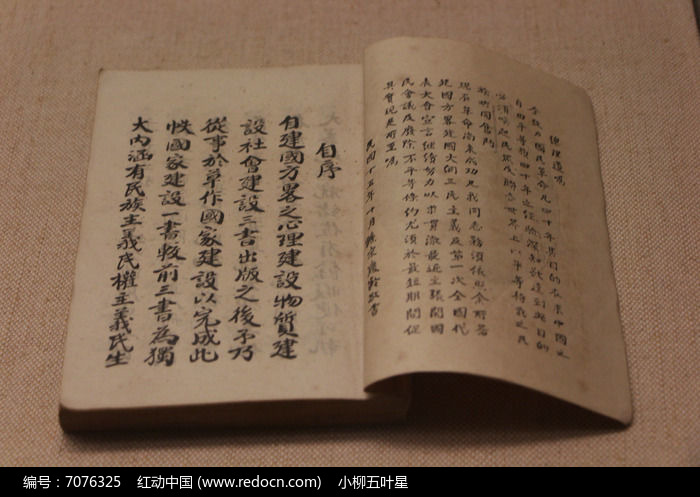 總理遺囑
余致力國民革命凡四十年其目的在求中國之
自由平等積四十年之經驗深知欲達到此目的
必須喚起民眾及聯合世界上以平等待我之民
族共同奮鬥
現在革命尚未成功凡我同志務須依照余所著
建國方畧建國大綱三民主義及第一次全國代
表大會宣言繼續努力以求貫澈最近主張開國
民會議及廢除不平等條約尤須於最短期間促
其實現是所至囑
民國十五年十月敬書
自序
自建國方畧之心理建設物質建
設社會建設三書出版之後予乃
從事於草作國家建設以完成此
帙國家建設一書較前三書為獨
大內涵有民族主義民權主義民生
编号：7076325 红动中国 (www.redocn.com) 小柳五叶星